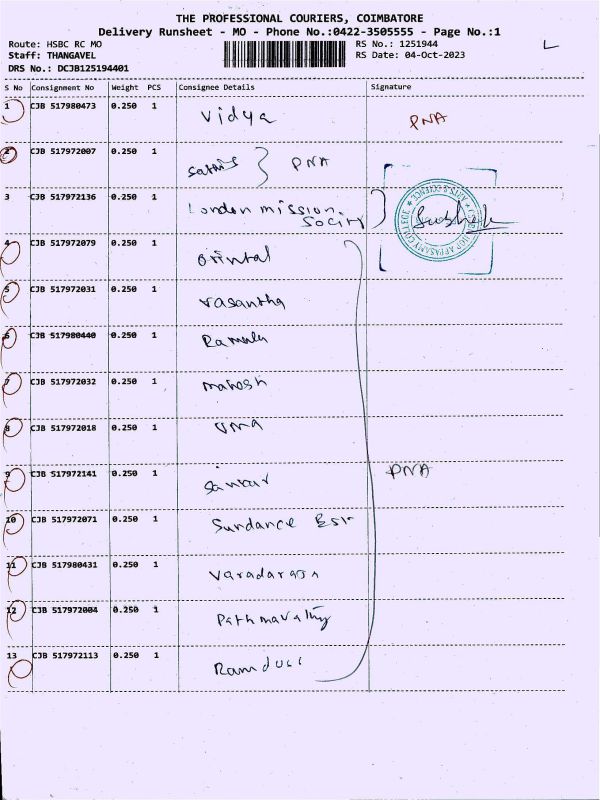 THE PROFESSIONAL COURIERS, COIMBATORE
Delivery Runsheet - MO - Phone No.:0422-3505555 - Page No.:1
Route: HSBC RC MO RS No.: 1251944
Staff: THANGAVEL RS Date: 04-Oct-2023
DRS No.: DCJB125194401
S No Consignment No Weight PCS Consignee Details Signature
1 CJB 517980473 0.250 1 Vidya PNA
2 CJB 517972007 0.250 1 PNA
3 CJB 517972136 0.250 1 London mission
4 CJB 517972079 0.250 1 Orintal
5 CJB 517972031 0.250 1 Vasantha
6 CJB 517980440 0.250 1
7 CJB 517972032 0.250 1 Mahosh
8 CJB 517972018 0.250 1 UMA
9 CJB 517972141 0.250 1 Sankar PNA
10 CJB 517972071 0.250 1 Sundance Est
11 CJB 517980431 0.250 1 Varadaraja
12 CJB 517972004 0.250 1 Pathmavathy
13 CJB 517972113 0.250 1
BISHOP APPASAMY COLLEGE ARTS & SCIENCE